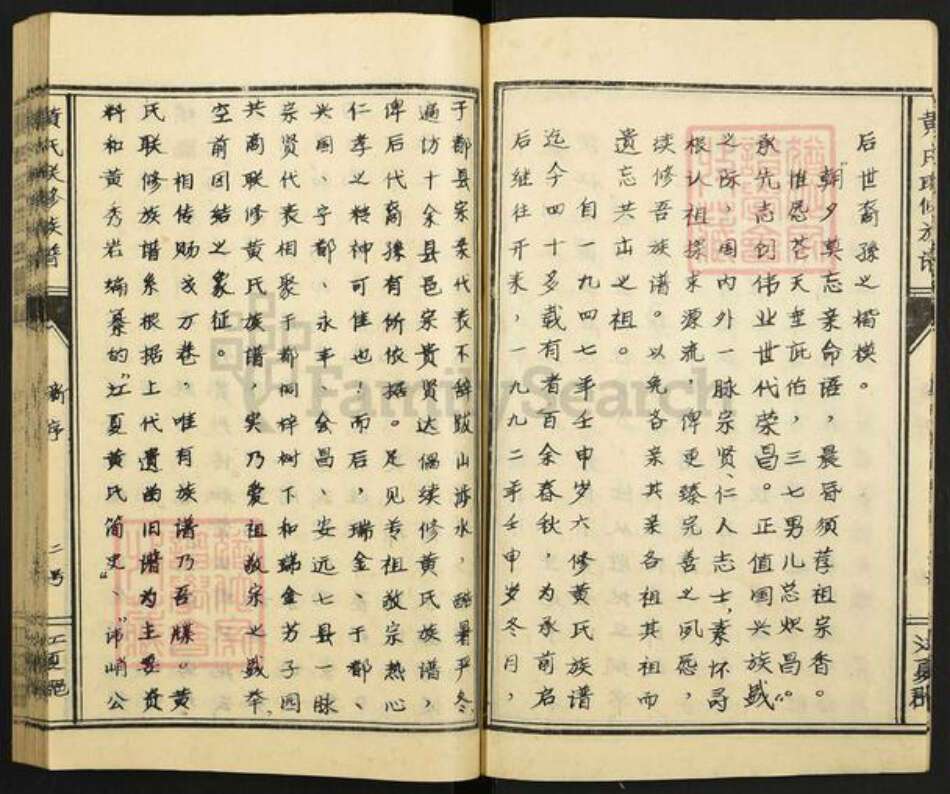 后世裔孫之楷模。
"朝夕莫忘亲命语，晨昏须荐祖宗香。
惟愿苍天垂庇佑，三七男儿总炽昌。"
承先志创伟业世代荣昌。正值国兴族盛
之际，国内外一脉宗贤、仁人志士，素怀寻
根认祖探求源流，俾更臻完善之夙愿，
续修吾族谱。以免各亲其亲各祖其祖而
遗忘共㞢之祖。
自一九四七年壬申岁六修黄氏族谱
迄今四十多载有者百余春秋，为承前启
后继往开来，一九九二年壬申岁冬月，
于都县宗亲代表不辞跋山涉水，酷暑严冬
遍访十余县邑宗贵贤达偶续修黄氏族谱，
俾后代裔孫有所依据。足见尊祖敬宗热心
仁孝之精神可佳也！而后，瑞金、于都、
兴国、宁都、永丰、会昌、安远七县一脉
宗贤代表相聚于都桐梓树下和瑞金芳子园
共商联修黄氏族谱，实乃爱祖敬宗之盛举，
空前团结之象征。
相传赐戓万巷，唯有族谱乃吾牒。黄
氏联修族谱系根据上代遗凾旧谱为主要资
料和黄秀岩编纂的"江夏黄氏简史"、"沛峭公
黄氏联修族谱
新序
二号
江夏郡
黄氏联修族谱
江夏郡
FamilySearch